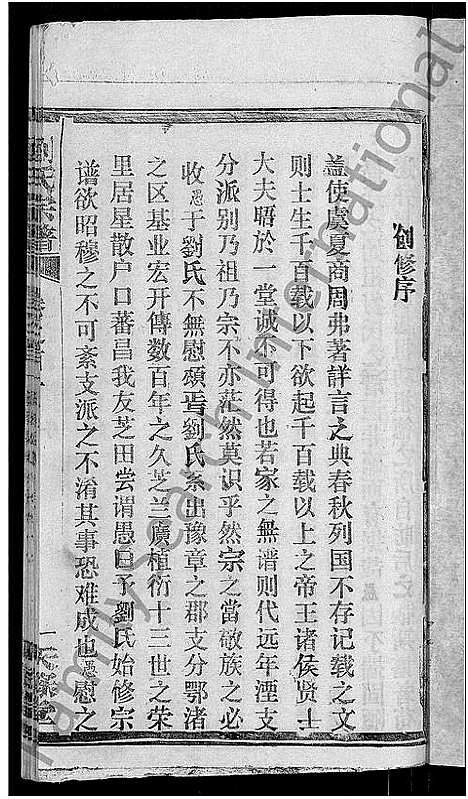 創修序
盖使虞夏商周弗著詳言之典春秋列国不存记载之文
则士生千百载以下欲起千百载以上之帝王诸侯贤士
大夫晤於一堂诚不可得也若家之無谱则代远年湮支
分派别乃祖乃宗不亦茫然莫识乎然宗之當敬族之必
收愚于劉氏不無慰頌焉劉氏系出豫章之郡支分鄂渚
之区基业宏开傳数百年之久芝兰廣植衍十三世之荣
里居星散户口蕃昌我友芝田尝谓愚曰予劉氏始修宗
谱欲昭穆之不可紊支派之不淆其事恐难成也愚慰之
劉氏宗譜
一
FamilySearch International